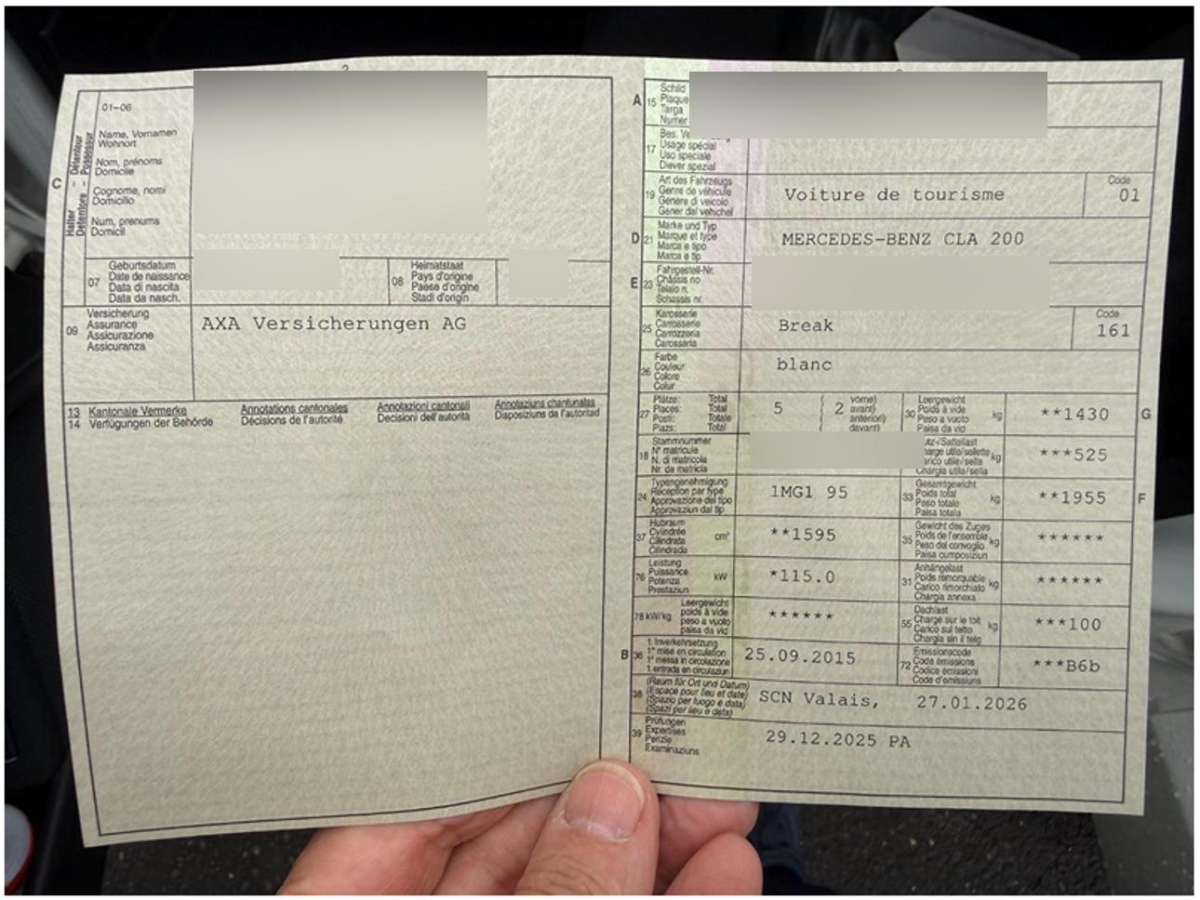 2
C
Halter - Détenteur
Detentore - Possessur
01-06
Name, Vornamen
Wohnort
Nom, prénoms
Domicile
Cognome, nomi
Domicilio
Num, prenums
Domicil
07
Geburtsdatum
Date de naissance
Data di nascita
Data da nasch.
08
Heimatstaat
Pays d'origine
Paese d'origine
Stadi d'origin
09
Versicherung
Assurance
Assicurazione
Assicuranza
AXA Versicherungen AG
13 Kantonale Vermerke Annotations cantonales Annotazioni cantonali Annotaziuns chantunalas
14 Verfügungen der Behörde Décisions de l'autorité Decisioni dell'autorità Disposiziuns da l'autoritad
A
15
Schild
Plaque
Targa
Numer
17
Bes. Ve
Usage spécial
Uso speciale
Diever spezial
19
Art des Fahrzeugs
Genre de véhicule
Genere di veicolo
Gener dal vehichel
Voiture de tourisme
Code
01
D
21
Marke und Typ
Marque et type
Marca e tipo
Marca e tip
MERCEDES-BENZ CLA 200
E
23
Fahrgestell-Nr.
Châssis no
Telaio n.
Schassis nr.
25
Karosserie
Carrosserie
Carrozzeria
Carossaria
Break
Code
161
26
Farbe
Couleur
Colore
Colur
blanc
27
Plätze: Total
Places: Total
Posti: Totale
Plazs: Total
5
( 2
vorne)
avant)
anteriori)
davant)
30
Leergewicht
Poids à vide
Peso a vuoto
Paisa da vid
kg
**1430
G
18
Stammnummer
N° matricule
N. di matricola
Nr. da matricla
utz-/Sattellast
harge utile/sellette
arico utile/sella
Chargia utila/sella
kg
***525
24
Typengenehmigung
Réception par type
Approvazione del tipo
Approvaziun dal tip
1MG1 95
33
Gesamtgewicht
Poids total
Peso totale
Paisa totala
kg
**1955
F
37
Hubraum
Cylindrée
Cilindrata
Cilindrada
cm³
**1595
35
Gewicht des Zuges
Poids de l'ensemble
Peso del convoglio
Paisa cumposiziun
kg
******
76
Leistung
Puissance
Potenza
Prestaziun
kW
*115.0
31
Anhängelast
Poids remorquable
Carico rimorchiato
Chargia annexa
kg
******
78 kW/kg
Leergewicht
poids à vide
peso a vuoto
paisa da vid
******
55
Dachlast
Charge sur le toit
Carico sul tetto
Chargia sin il tetg
kg
***100
B
36
1. Inverkehrsetzung
1re mise en circulation
1a messa in circolazione
1. entrada en circulaziun
25.09.2015
72
Emissionscode
Code émissions
Codice emissioni
Code d'emissiuns
***B6b
38
(Raum für Ort und Datum)
(Espace pour lieu et date)
(Spazio per luogo e data)
(Spazi per lieu e data)
SCN Valais, 27.01.2026
39
Prüfungen
Expertises
Perizie
Examinaziuns
29.12.2025 PA